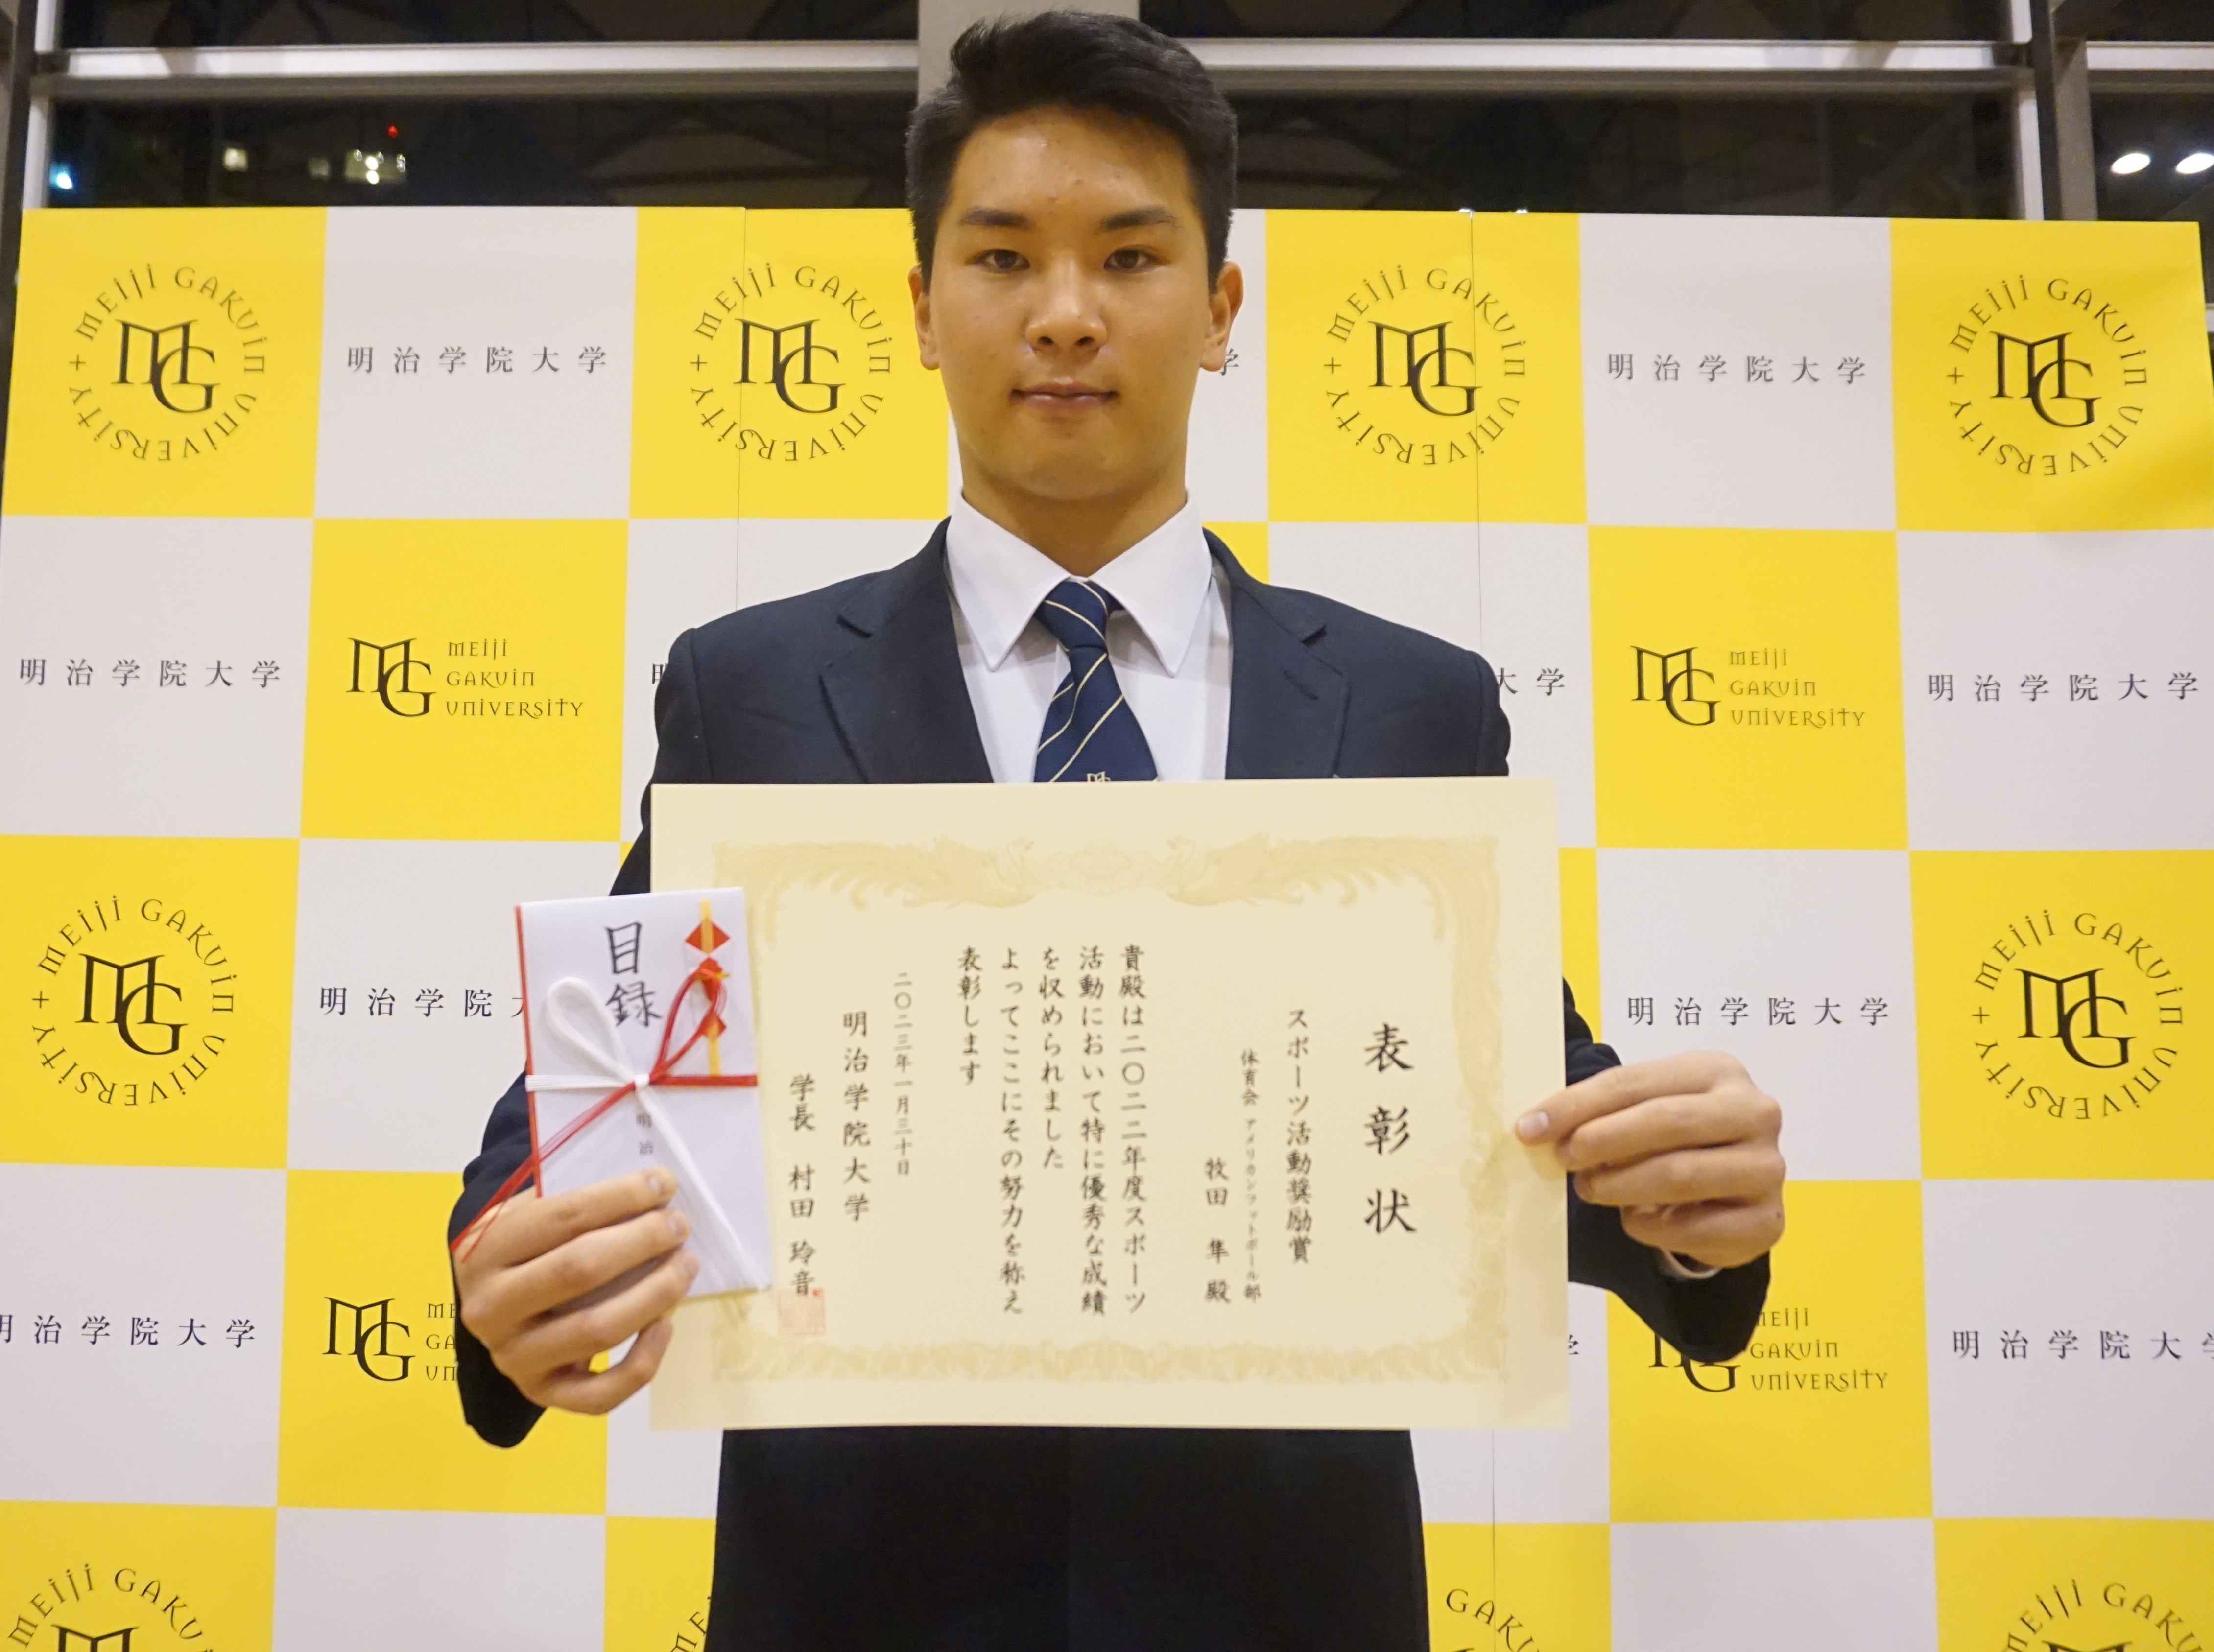 表彰状
スポーツ活動奨励賞
体育会 アメリカンフットボール部
牧田 隼 殿
貴殿は二〇二二年度スポーツ
活動において特に優秀な成績
を収められました
よってここにその努力を称え
表彰します
二〇二三年一月三十日
明治学院大学
学長 村田 玲音
目録
明治
MG
MEIJI GAKUIN UNIVERSITY
明治学院大学
MEIJI GAKUIN UNIVERSITY
MG
学
MEIJI GAKUIN UNIVERSITY
MG
明治学院大学
MEIJI GAKUIN UNIVERSITY
MG
明治学院大学
MG
MEIJI
GAKUIN
UNIVERSITY
大学
MG
MEIJI
GAKUIN
UNIVERSITY
明治学院大学
MEIJI GAKUIN UNIVERSITY
MG
明治学院
明治学院大学
MEIJI GAKUIN UNIVERSITY
MG
治学院大学
MG
ME
GA
UN
MEIJI
GAKUIN
UNIVERSITY
明治学院大学
MEIJI GAKUIN
GAKUIN
MEIJI GAKUIN